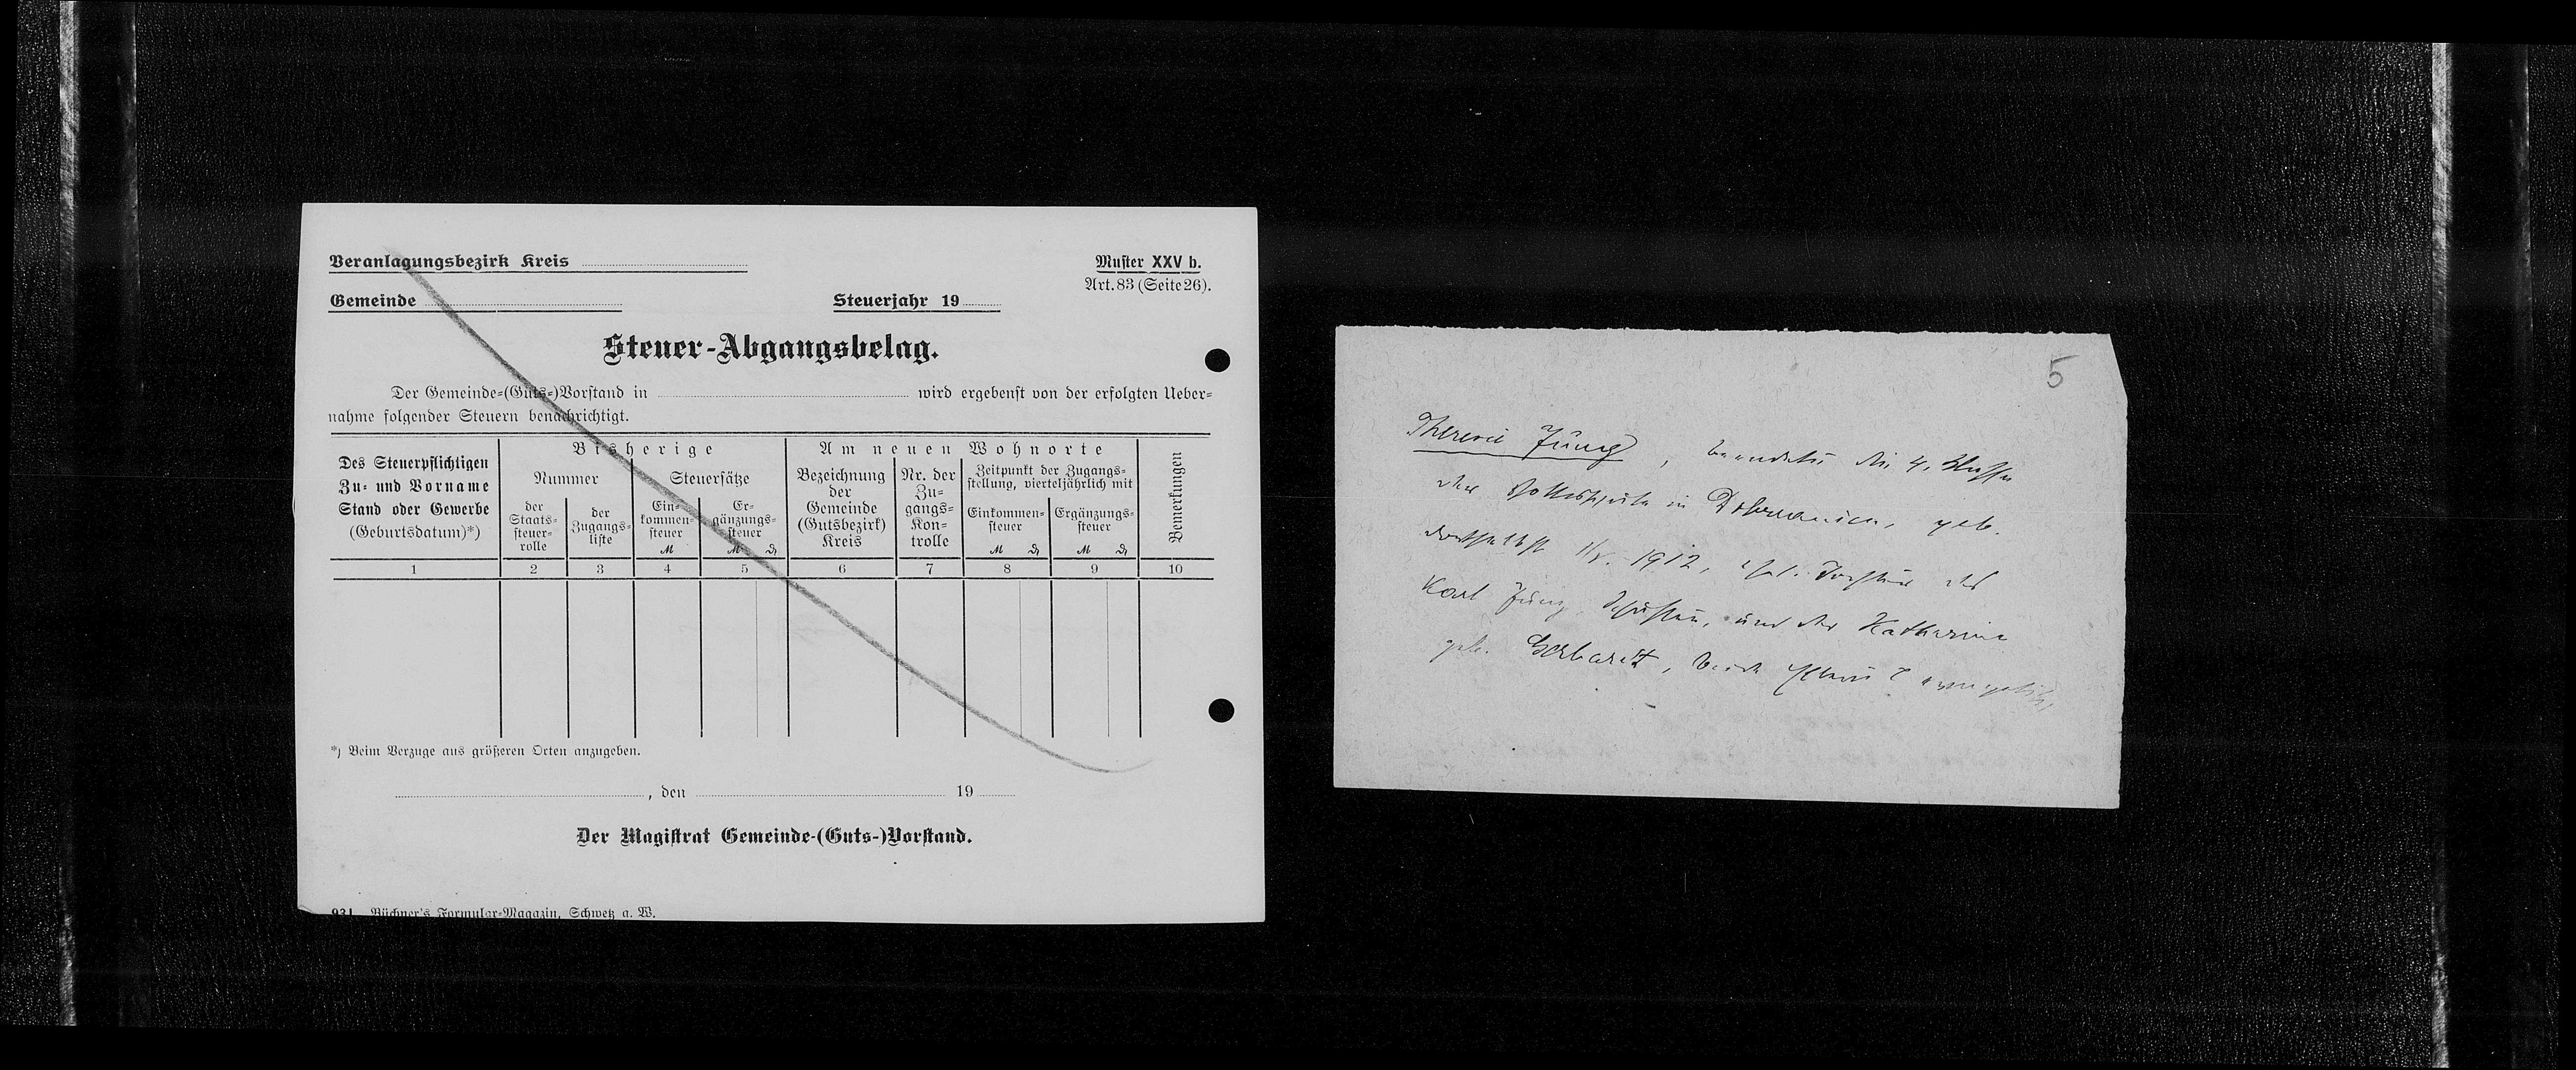 Veranlagungsbezirk Kreis
Muster XXV b.
Art. 83 (Seite 26).
Gemeinde
Steuerjahr 19
Steuer-Abgangsbelag.
Der Gemeinde-(Guts-)Vorstand in wird ergebenst von der erfolgten Ueber-
nahme folgender Steuern benachrichtigt.
Des Steuerpflichtigen
Zu- und Vorname
Stand oder Gewerbe
(Geburtsdatum)*)
Bisherige
Nummer
der
Staats-
steuer-
rolle
der
Zugangs-
liste
Steuersätze
Ein-
kommen-
steuer
M
Er-
gänzungs-
steuer
M ₰
Am neuen Wohnorte
Bezeichnung
der
Gemeinde
(Gutsbezirk)
Kreis
Nr. der
Zu-
gangs-
Kon-
trolle
Zeitpunkt der Zugangs-
stellung, vierteljährlich mit
Einkommen-
steuer
M ₰
Ergänzungs-
steuer
M ₰
Bemerkungen
1 2 3 4 5 6 7 8 9 10
*) Beim Verzuge aus größeren Orten anzugeben.
, den 19
Der Magistrat Gemeinde-(Guts-)Vorstand.
931 Büchner's Formular-Magazin, Schwetz a. W.
5
Therese Jung, beendete die 4. Klasse
der Volksschule in geb.
dortselbst 1912, ehel. Tochter des
Karl Jung, Schuster, und der Katharina
geb. Gerhardt, beide evangelisch,